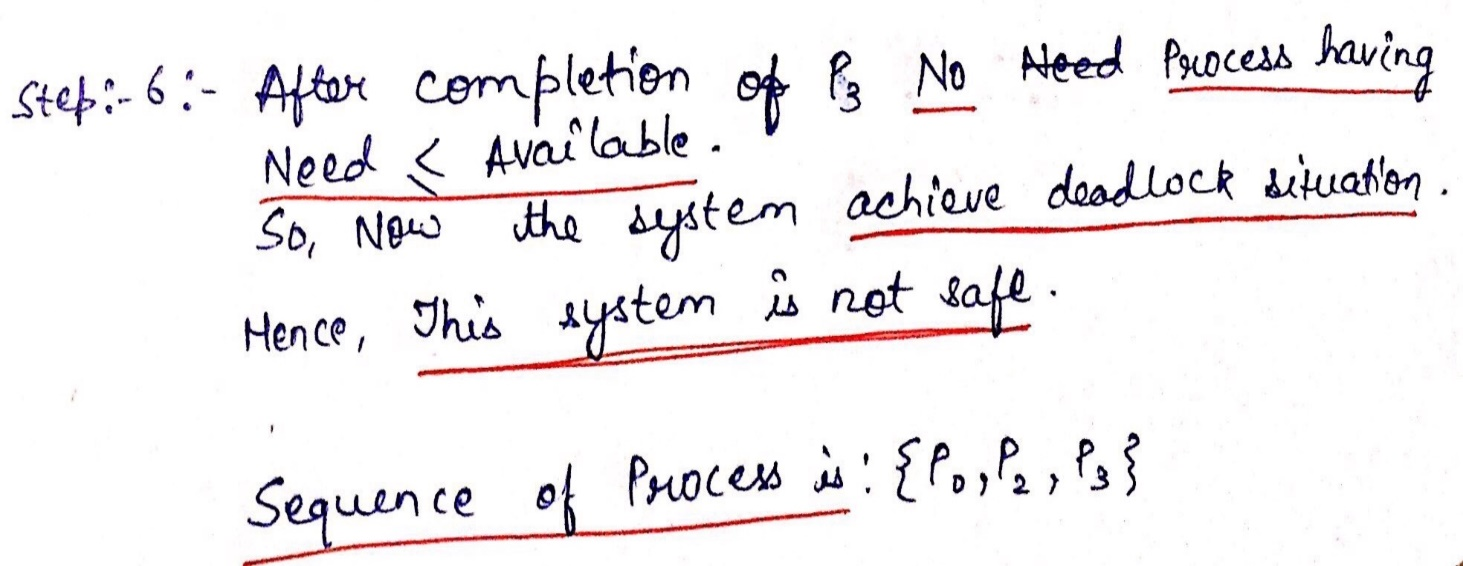 Step:- 6:- After completion of P₃ No Need Process having
Need ≤ Available.
So, Now the system achieve deadlock situation.
Hence, This system is not safe.
Sequence of Process is: {P₀, P₂, P₃}